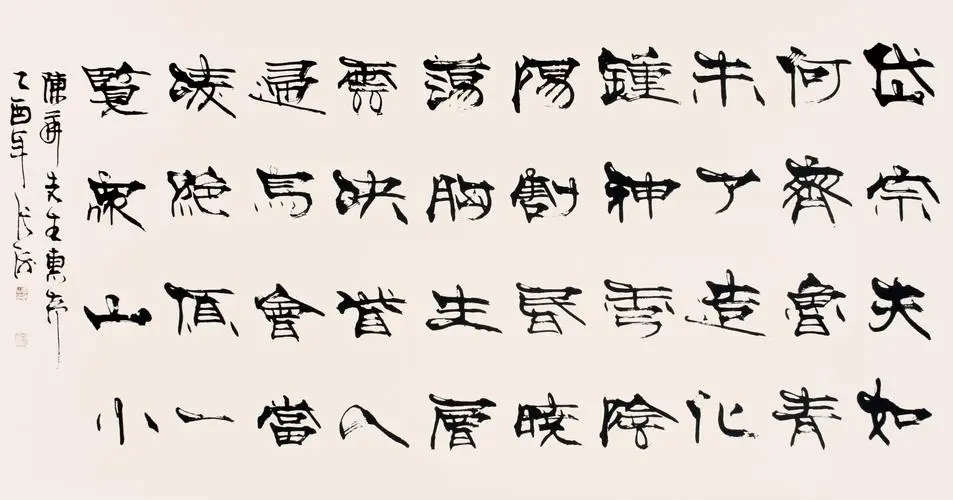 岱宗夫如
何齊魯青
未了造化
鍾神秀陰
陽割昏曉
蕩胸生層
雲決眥入
歸鳥會當
凌絕頂一
覽衆山小
陳 先生惠存
乙酉年 張海